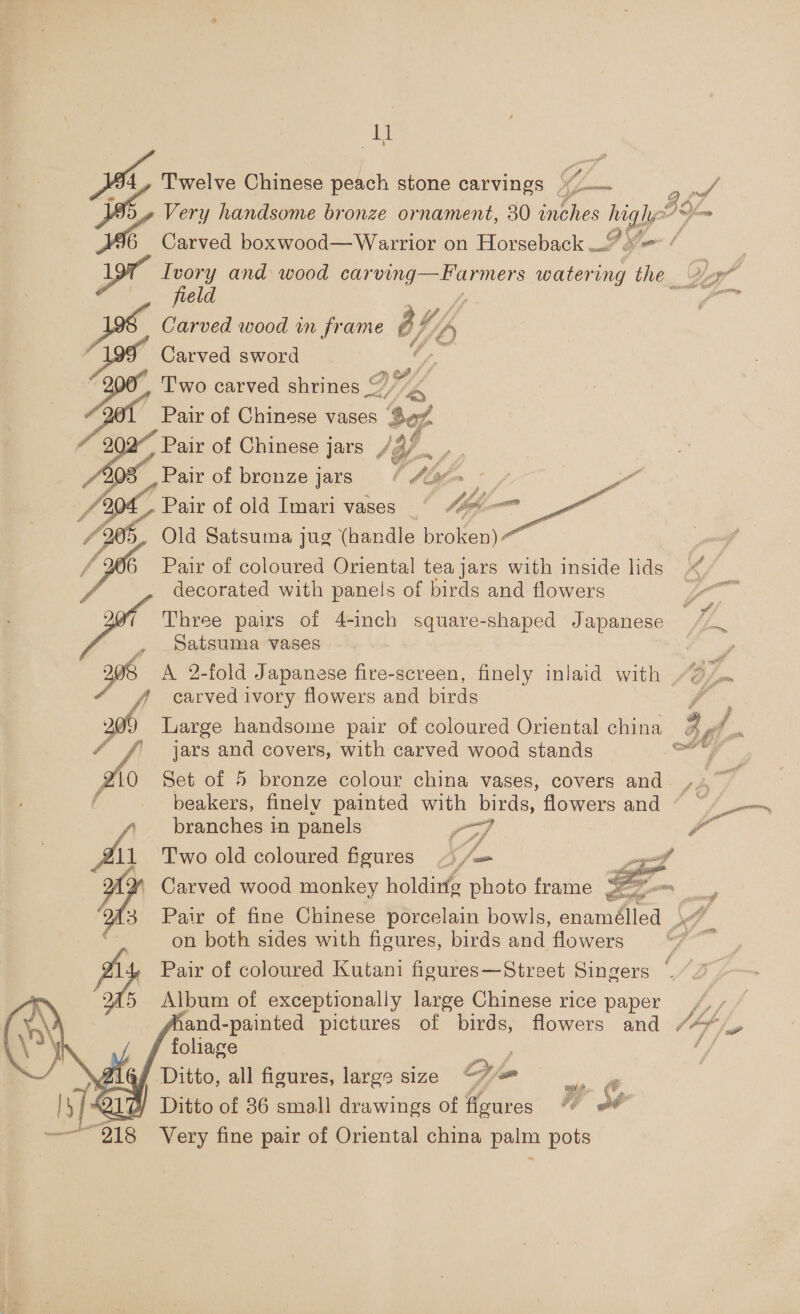 11
194 Twelve Chinese peach stone carvings
195 Very handsome bronze ornament, 30 inches high
196 Carved boxwood—Warrior on Horseback
197 Ivory and wood carving—Farmers watering the
field
198 Carved wood in frame
199 Carved sword
200 Two carved shrines
201 Pair of Chinese vases
202 Pair of Chinese jars
203 Pair of bronze jars
204 Pair of old Imari vases
205 Old Satsuma jug (handle broken)
206 Pair of coloured Oriental tea jars with inside lids
decorated with panels of birds and flowers
207 Three pairs of 4-inch square-shaped Japanese
Satsuma vases
208 A 2-fold Japanese fire-screen, finely inlaid with
carved ivory flowers and birds
209 Large handsome pair of coloured Oriental china
jars and covers, with carved wood stands
210 Set of 5 bronze colour china vases, covers and
beakers, finely painted with birds, flowers and
branches in panels
211 Two old coloured figures
212 Carved wood monkey holding photo frame
213 Pair of fine Chinese porcelain bowls, enamelled
on both sides with figures, birds and flowers
214 Pair of coloured Kutani figures—Street Singers
215 Album of exceptionally large Chinese rice paper
hand-painted pictures of birds, flowers and
foliage
216 Ditto, all figures, large size
217 Ditto of 36 small drawings of figures
218 Very fine pair of Oriental china palm pots